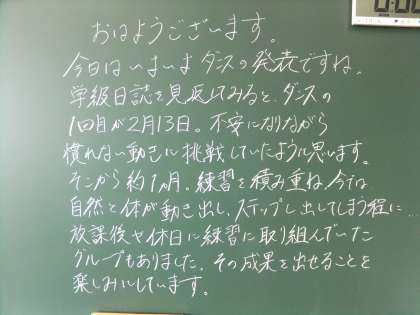 おはようございます。
今日はいよいよダンスの発表ですね。
学級日誌を見返してみると、ダンスの
1回目が2月13日。不安になりながら
慣れない動きに挑戦していたように思います。
そこから約1ヵ月。練習を積み重ね、今では
自然と体が動き出し、ステップし出してしまう程に…
放課後や休日に練習に取り組んでいた
グループもありました。その成果を出せることを
楽しみにしています。